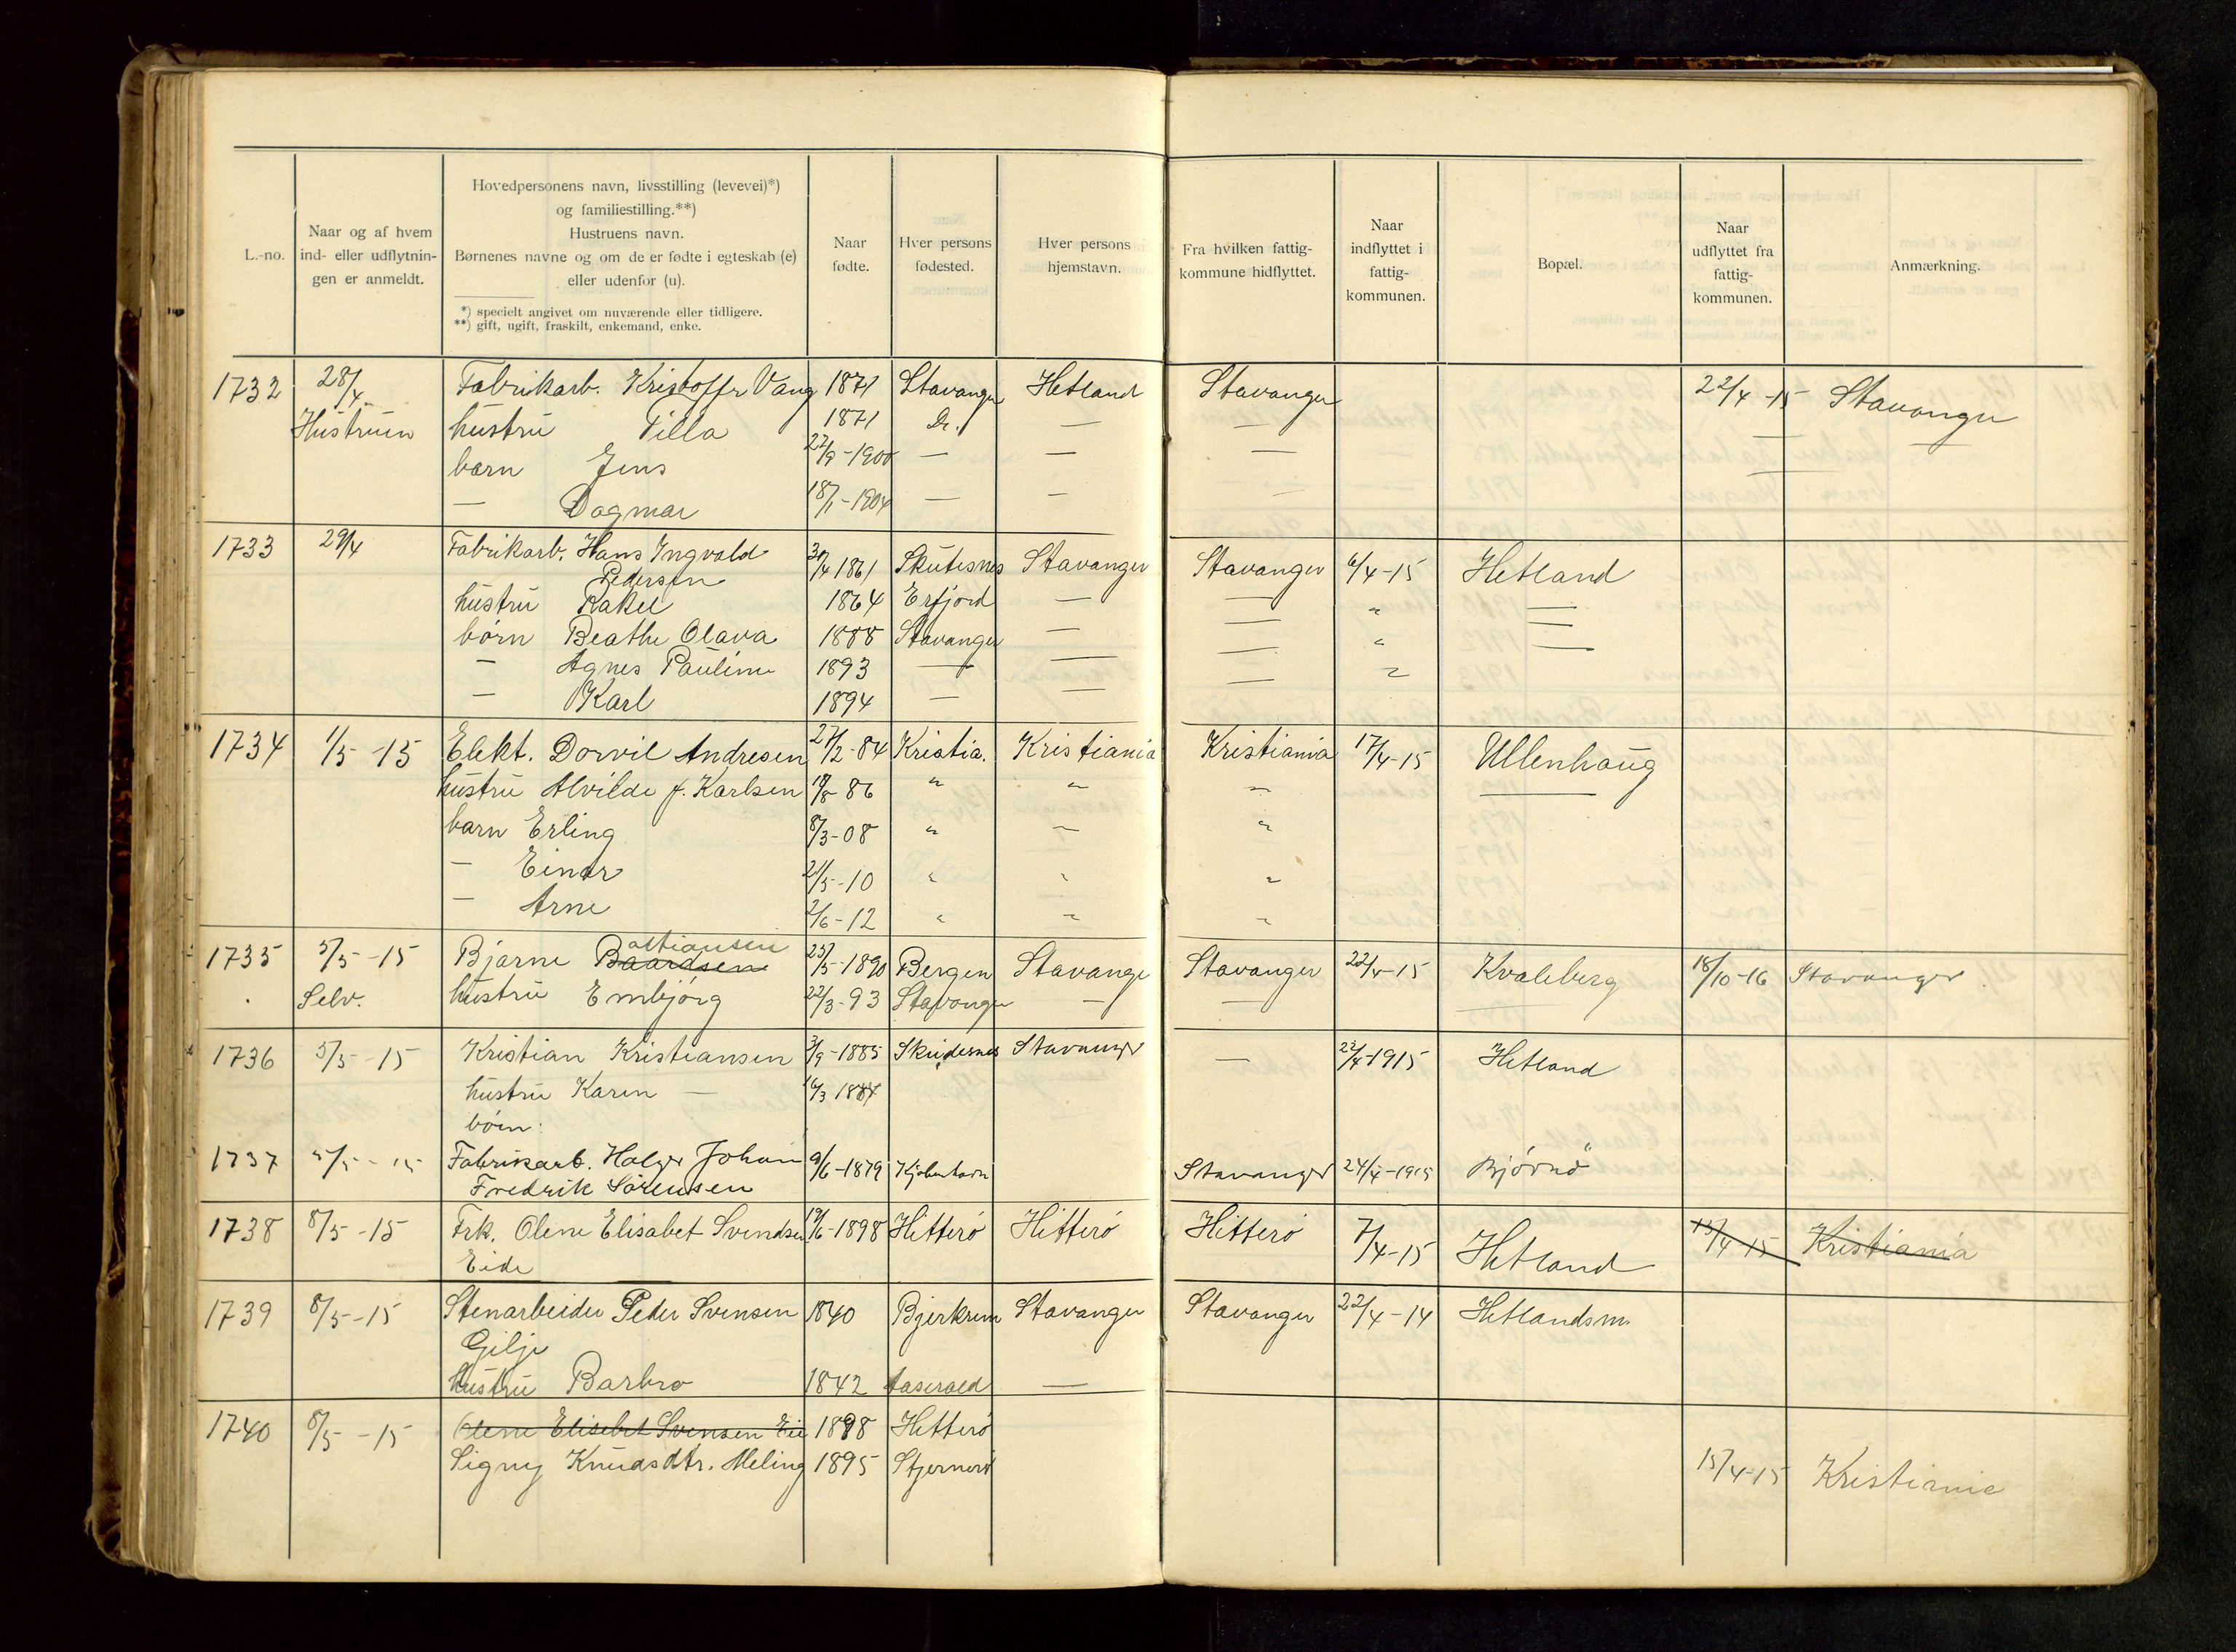 L.-no.
Naar og af hvem
ind- eller udflytnin-
gen er anmeldt.
Hovedpersonens navn, livsstilling (levevei)*)
og familiestilling.**)
Hustruens navn.
Børnenes navne og om de er fødte i egteskab (e)
eller udenfor (u).
*) specielt angivet om nuværende eller tidligere.
**) gift, ugift, fraskilt, enkemand, enke.
Naar
fødte.
Hver persons
fødested.
Hver persons
hjemstavn.
Fra hvilken fattig-
kommune hidflyttet.
Naar
indflyttet i
fattig-
kommunen.
Bopæl.
Naar
udflyttet fra
fattig-
kommunen.
Anmærkning.
1732 28/4 Fabrikarb. Kristoffer Vang 1871 Stavanger Hetland Stavanger 22/4-15 Stavanger
Hustruen hustru Tilla 1871 Do. — — — —
barn Jens 27/9-1900 — — — —
— Dagmar 18/1-1904 — — —
1733 29/4 Fabrikarb. Hans Ingvald 30/4 1861 Skutesnes Stavanger Stavanger 6/4-15 Hetland
Pedersen
hustru Rakel 1864 Erfjord — — " —
børn Beathe Olava 1888 Stavanger — — " —
— Agnes Pauline 1893 — — — " —
— Karl 1894 — — —
1734 1/5-15 Elekt. Dorvil Andresen 27/2-84 Kristia. Kristiania Kristiania 17/4-15 Ullenhaug
hustru Alvilde f. Karlsen 18/8 86 " " "
barn Erling 8/3-08 " " "
— Einar 21/5-10 " " "
— Arne 2/6-12 " " "
1735 5/5-15 Bjarne Baardsen 25/5-1890 Bergen Stavange Stavanger 22/4-15 Kvaleberg 18/10-16 Stavanger
Selv. hustru Embjørg 22/3-93 Stavanger — —
1736 5/5-15 Kristian Kristiansen 3/9-1885 Skudesnes Stavanger — 22/4-1915 Hetland
hustru Karen — 16/3 1884
børn:
1737 5/5-15 Fabrikarb. Holger Johan 9/6-1879 Kjøbenhavn Stavanger 24/4-1915 Bjørnø
Fredrik Sørensen
1738 8/5-15 Frk. Olene Elisabet Svendsen 19/6-1898 Hitterø Hitterø Hitterø 7/4-15 Hetland 15/4-15 Kristiania
Eide
1739 8/5-15 Stenarbeider Peder Svensen 1840 Bjerkrem Stavanger Stavanger 22/4-14 Hetlandsm.
Gilje
hustru Barbro 1842 —
1740 8/5-15 Olene Elisebet Svensen Eie 1898 Hitterø
Signy Knudsdtr. Meling 1895 Stjernerø 15/4-15 Kristiania